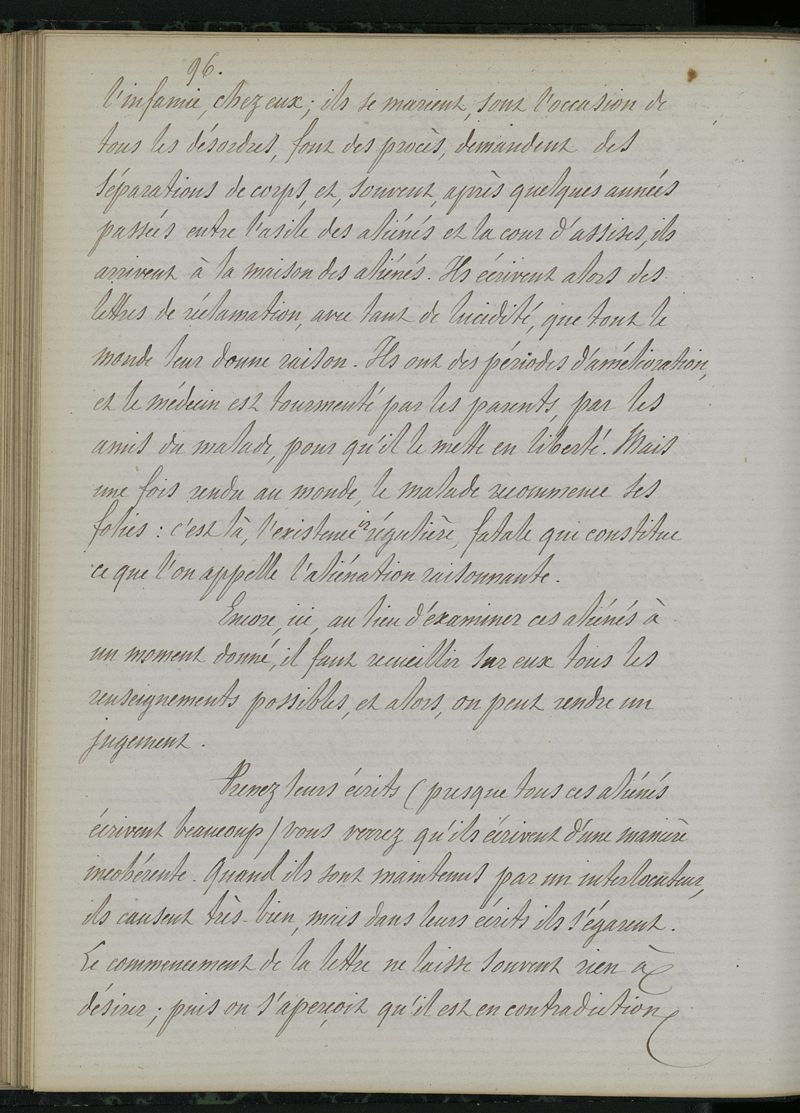 96.
l'infamie, chez eux; ils se marient, sont l'occasion de
tous les désordres, font des procès, demandent des
séparations de corps, et, souvent, après quelques années
passées entre l'asile des aliénés et la cour d'assises, ils
arrivent à la maison des aliénés. Ils écrivent alors des
lettres de réclamation, avec tant de lucidité, que tout le
monde leur donne raison. Ils ont des périodes d'amélioration,
et le médecin est tourmenté par les parents, par les
amis du malade, pour qu'il le mette en liberté. Mais
une fois rendu au monde, le malade recommence ses
folies : c'est là, l'existence irrégulière, fatale qui constitue
ce que l'on appelle l'aliénation raisonnante.
Encore, ici, au lieu d'examiner ces aliénés à
un moment donné, il faut recueillir sur eux tous les
renseignements possibles, et alors, on peut rendre un
jugement.
Prenez leurs écrits (presque tous ces aliénés
écrivent beaucoup) vous verrez qu'ils écrivent d'une manière
incohérente. Quand ils sont maintenus par un interlocuteur,
ils causent très-bien, mais dans leurs écrits ils s'égarent.
Le commencement de la lettre ne laisse souvent rien à
désirer; puis on s'aperçoit qu'il est en contradiction